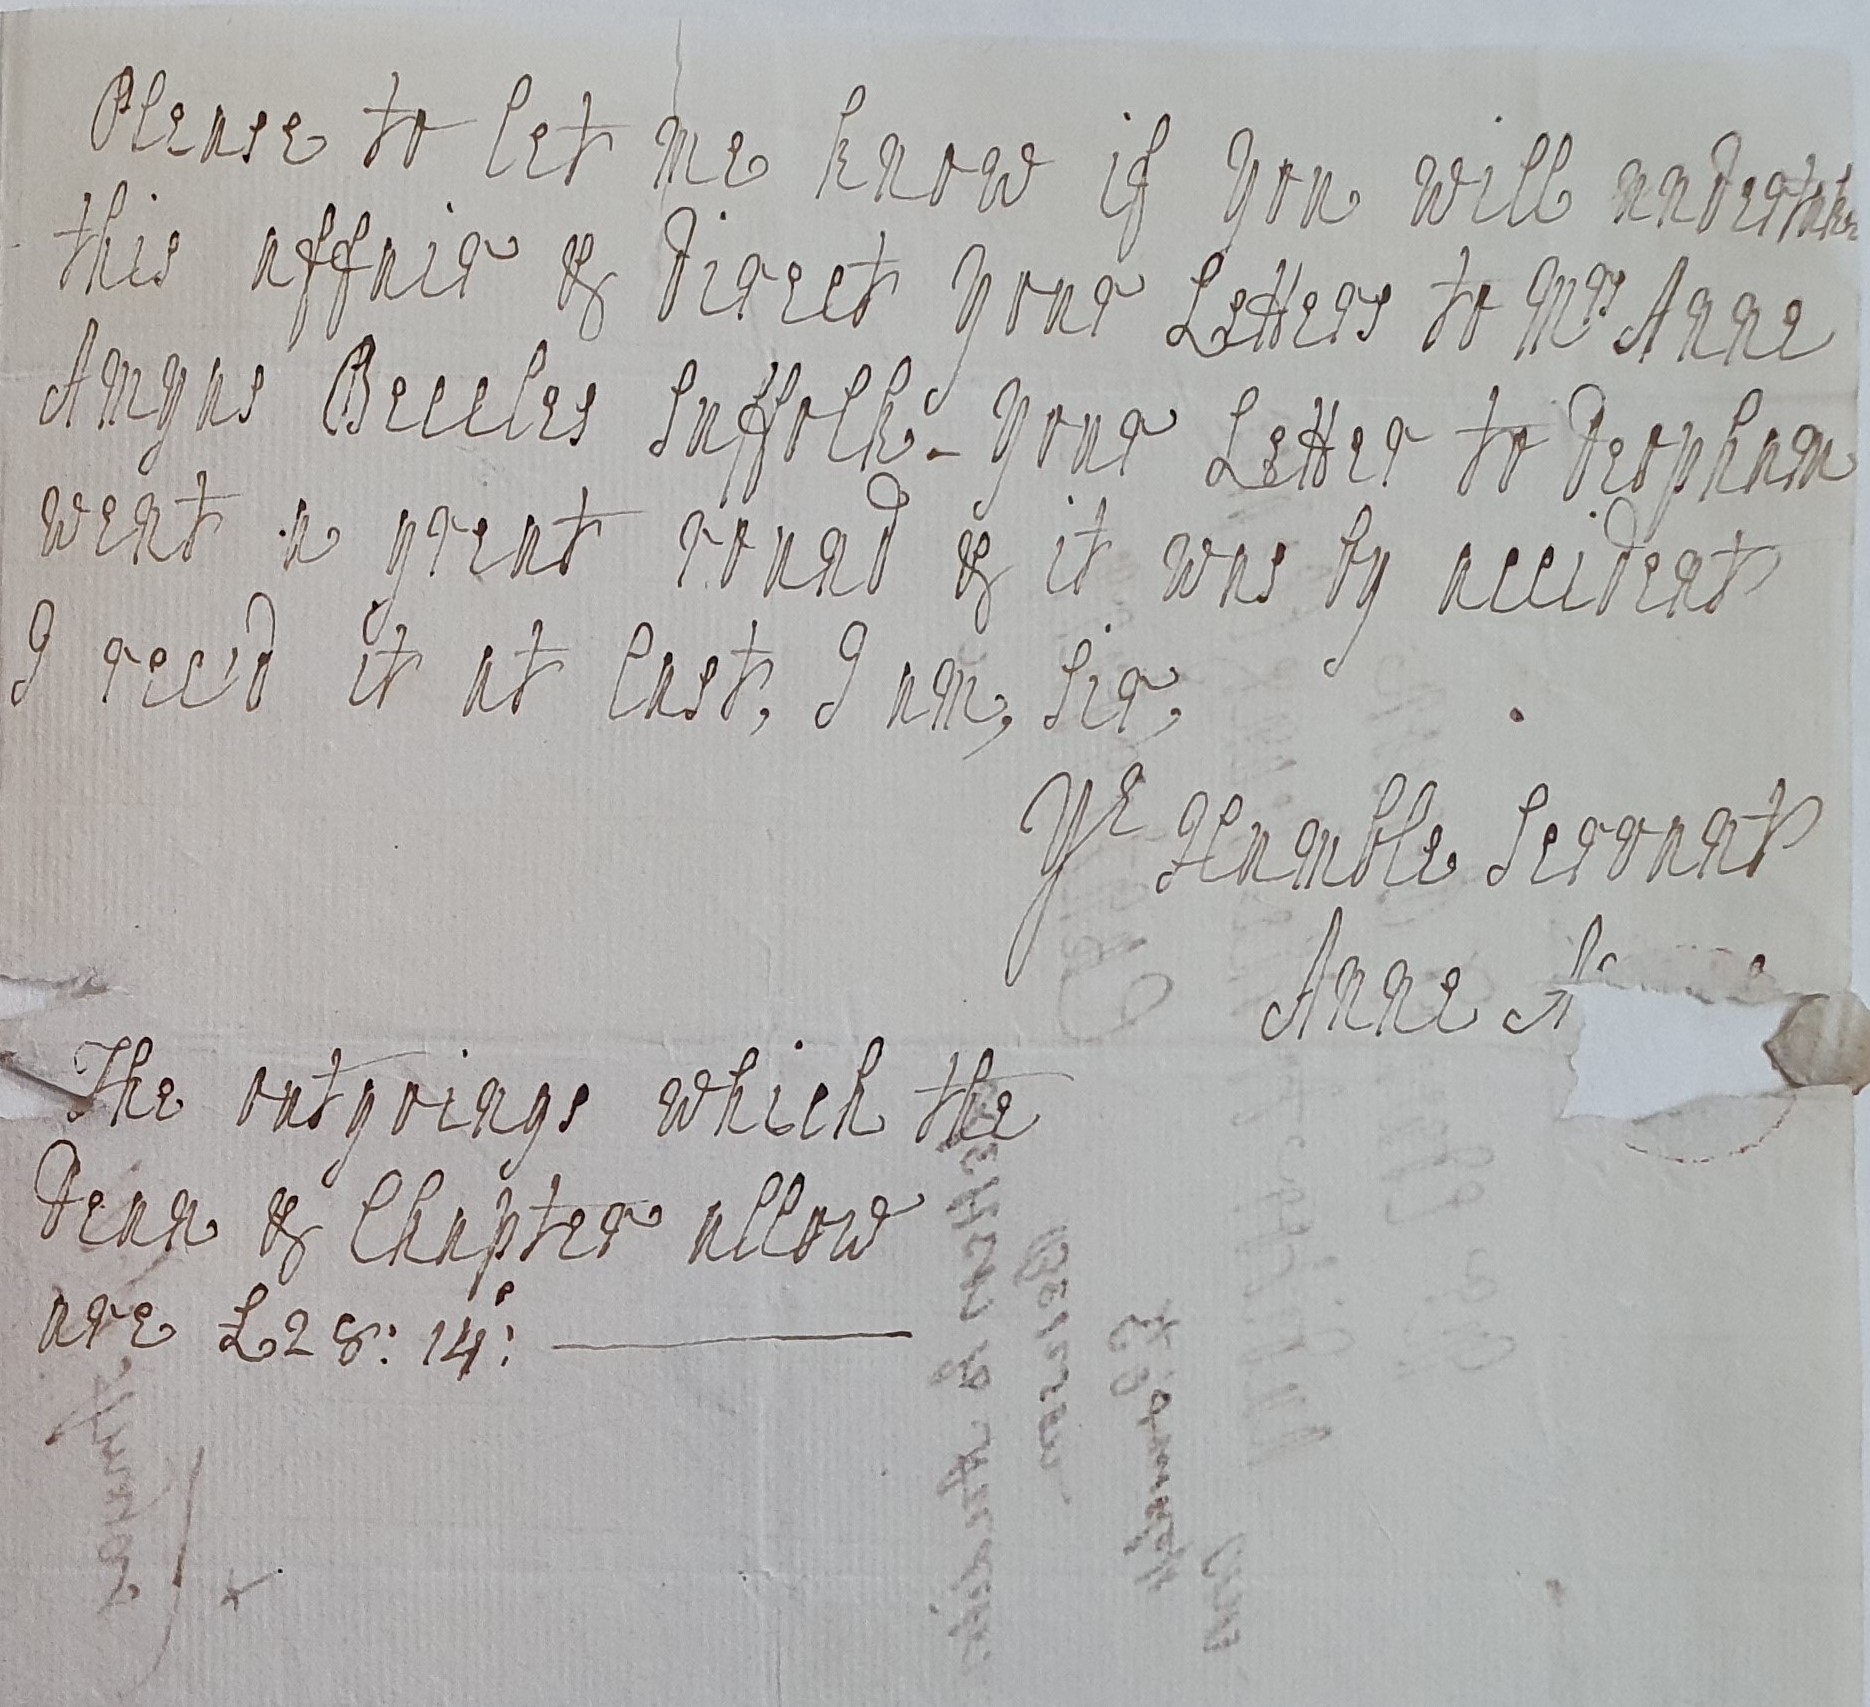 Please to let me know if you will undertake
this affair & Direct your Letters to Mrs Anne
Amyas Beccles Suffolk - your Letter to Deopham
went a great round & it was by accident
I rec'd it at last, I am, Sir,
Yr Humble Servant
Anne
The outgoings which the
Dean & Chapter allow
are £28: 14: